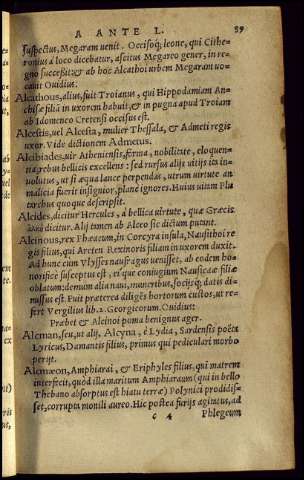 A ANTE L. 39
suspectus, Megaram uenit. Occisoq; leone, qui Cithe-
ronius a loco dicebatur, ascitus Megareo gener, in re-
gno successit: & ab hoc Alcathoi urbem Megaram uo-
cauit Ouidius.
Alcathous, alius, fuit Troianus, qui Hippodamiam An-
chisæ filiā in uxorem habuit, & in pugna apud Troiam
ab Idomeneo Cretensi occisus est.
Alcestis, uel Alcesta, mulier Thessala, & Admeti regis
uxor. Vide dictionem Admetus.
Alcibiades, uir Atheniensis, forma, nobilitate, eloquen-
tia, rebus bellicis excellens: sed rursus alijs uitijs ita in-
uolutus, ut si æqua lance perpendas, utrum uirtute an
malicia fuerit insignior, plane ignores. Huius uitam Plu
tarchus quoque descripsit.
Alcides, dicitur Hercules, a bellica uirtute, quæ Græcis
ἀλκὴ dicitur. Alij tamen ab Alceo sic dictum putant.
Alcinous, rex Phæacum, in Corcyra insula, Nausithoi re
gis filius, qui Areten Rexinoris filiam in uxorem duxit.
Ad hunc cum Vlysses naufragus uenisset, ab eodem ho-
norifice susceptus est, ei que coniugium Nausicaæ filiæ
oblatum: demum alia naui, muneribus, socijsq; datis di-
missus est. Fuit præterea diligēs hortorum cultor, ut re-
fert Vergilius lib. 2. Georgicorum. Ouidius:
Præbet & Alcinoi poma benignus ager.
Alcman, seu, ut alij, Alcyna, è Lydia, Sardensis poëta
Lyricus, Damantis filius, primus qui pediculari morbo
perijt.
Alcmæon, Amphiarai, & Eriphyles filius, qui matrem
interfecit, quòd illa maritum Amphiaraum (qui in bello
Thebano absorptus est hiatu terræ) Polynici prodidis-
set, corrupta monili aureo. Hic postea furijs agitatus, ad
c 4 Phlegeum